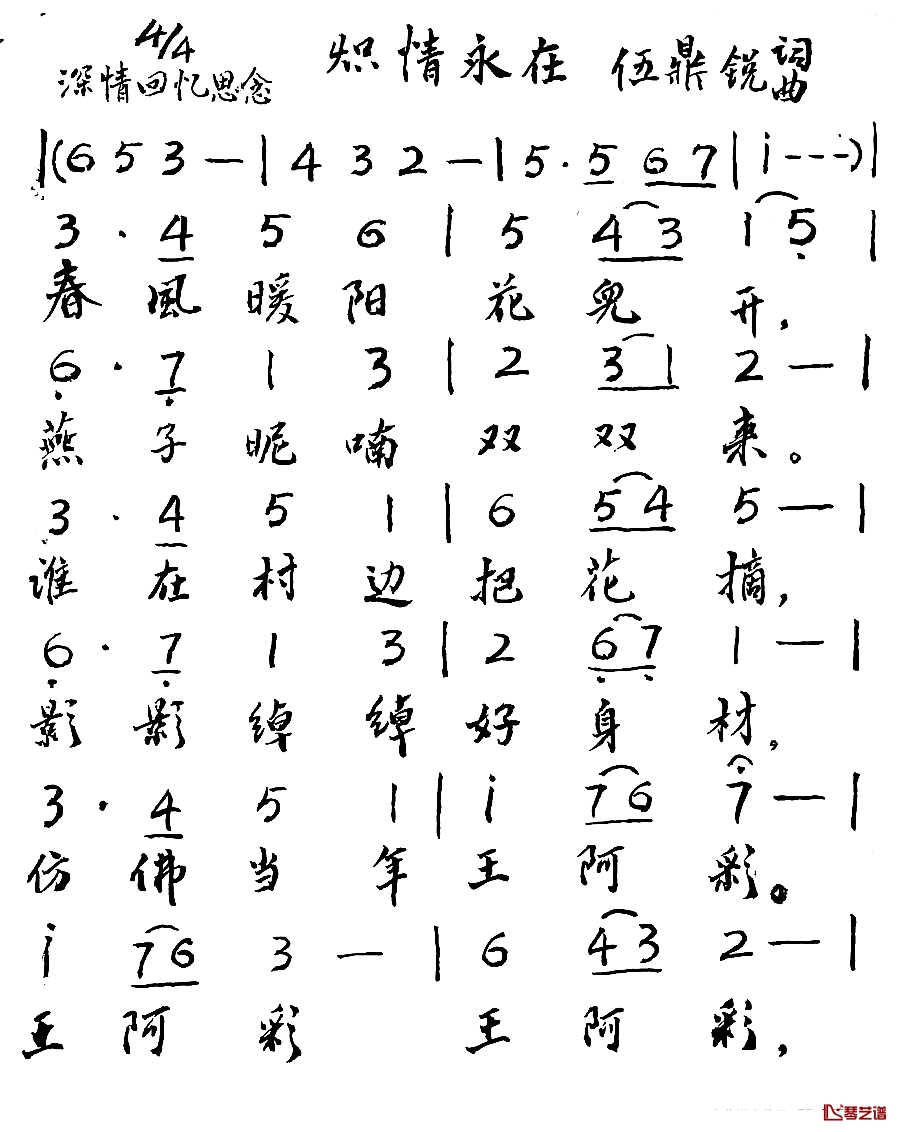 4/4 炽情永在 伍鼎锐 词曲
深情回忆思念
|(6 5 3 — | 4 3 2 — | 5 · 5 6 7 | i - - -)|
3 · 4 5 6 | 5 4 3 1 5 |
春風暖阳 花兒开,
6 · 7 1 3 | 2 3 1 2 — |
燕子昵喃双双来。
3 · 4 5 1 | 6 5 4 5 — |
谁在村边把花摘,
6 · 7 1 3 | 2 6 7 1 — |
影影绰绰好身材,
3 · 4 5 1 | i 7 6 7 — |
仿佛当年王阿彩。
i 7 6 3 — | 6 4 3 2 — |
王阿彩 王阿彩,
琴艺谱